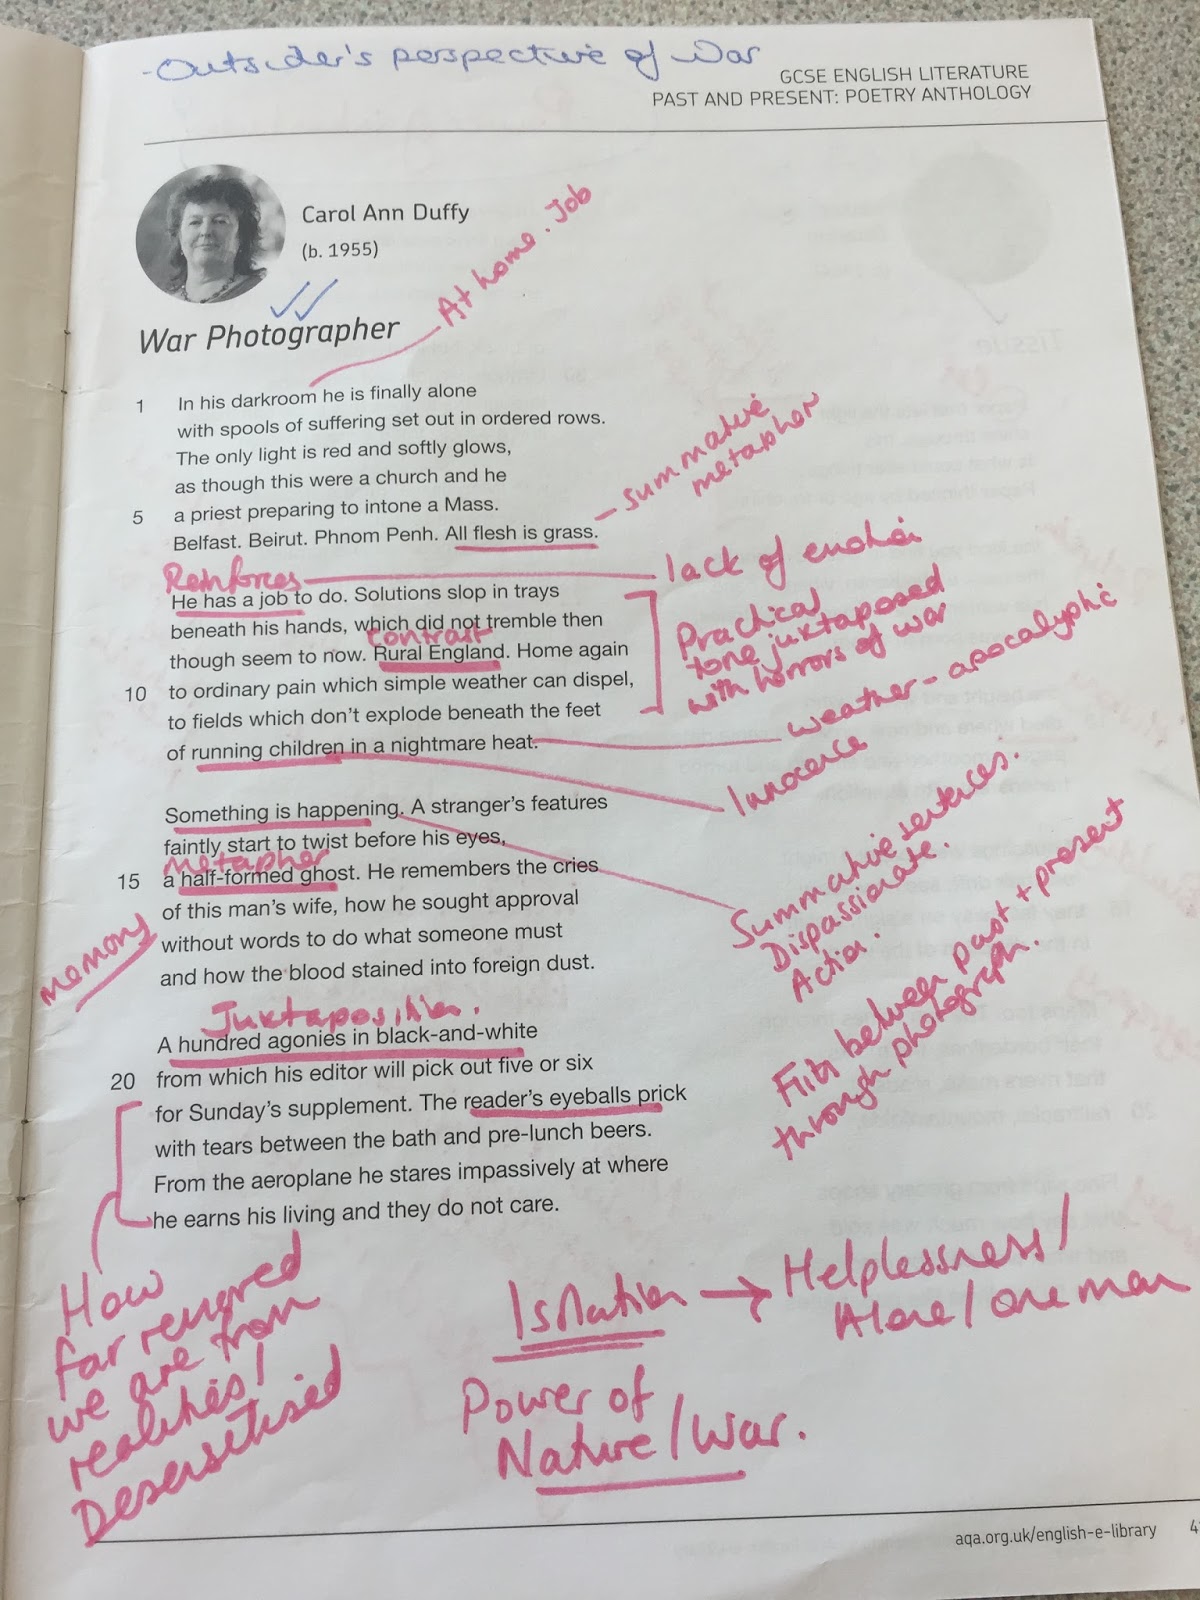 -Outsider's perspective of War
GCSE ENGLISH LITERATURE
PAST AND PRESENT: POETRY ANTHOLOGY
Carol Ann Duffy
(b. 1955)
At home. Job
War Photographer
1 In his darkroom he is finally alone
with spools of suffering set out in ordered rows.
The only light is red and softly glows,
as though this were a church and he
5 a priest preparing to intone a Mass.
Belfast. Beirut. Phnom Penh. All flesh is grass.
summative
metaphor
Reinforces
lack of emotion
He has a job to do. Solutions slop in trays
beneath his hands, which did not tremble then
contrast
though seem to now. Rural England. Home again
10 to ordinary pain which simple weather can dispel,
to fields which don't explode beneath the feet
of running children in a nightmare heat.
Practical
tone juxtaposed
with horrors of war
weather - apocalyptic
Innocence
Something is happening. A stranger's features
faintly start to twist before his eyes,
metaphor
15 a half-formed ghost. He remembers the cries
of this man's wife, how he sought approval
without words to do what someone must
and how the blood stained into foreign dust.
memory
Summative sentences.
Dispassionate.
Action.
Flits between past + present
through photograph.
Juxtaposition.
A hundred agonies in black-and-white
20 from which his editor will pick out five or six
for Sunday's supplement. The reader's eyeballs prick
with tears between the bath and pre-lunch beers.
From the aeroplane he stares impassively at where
he earns his living and they do not care.
How
far removed
we are from
realities/
Desensitised
Isolation → Helplessness/
Alone/one man
Power of
Nature/War.
aqa.org.uk/english-e-library